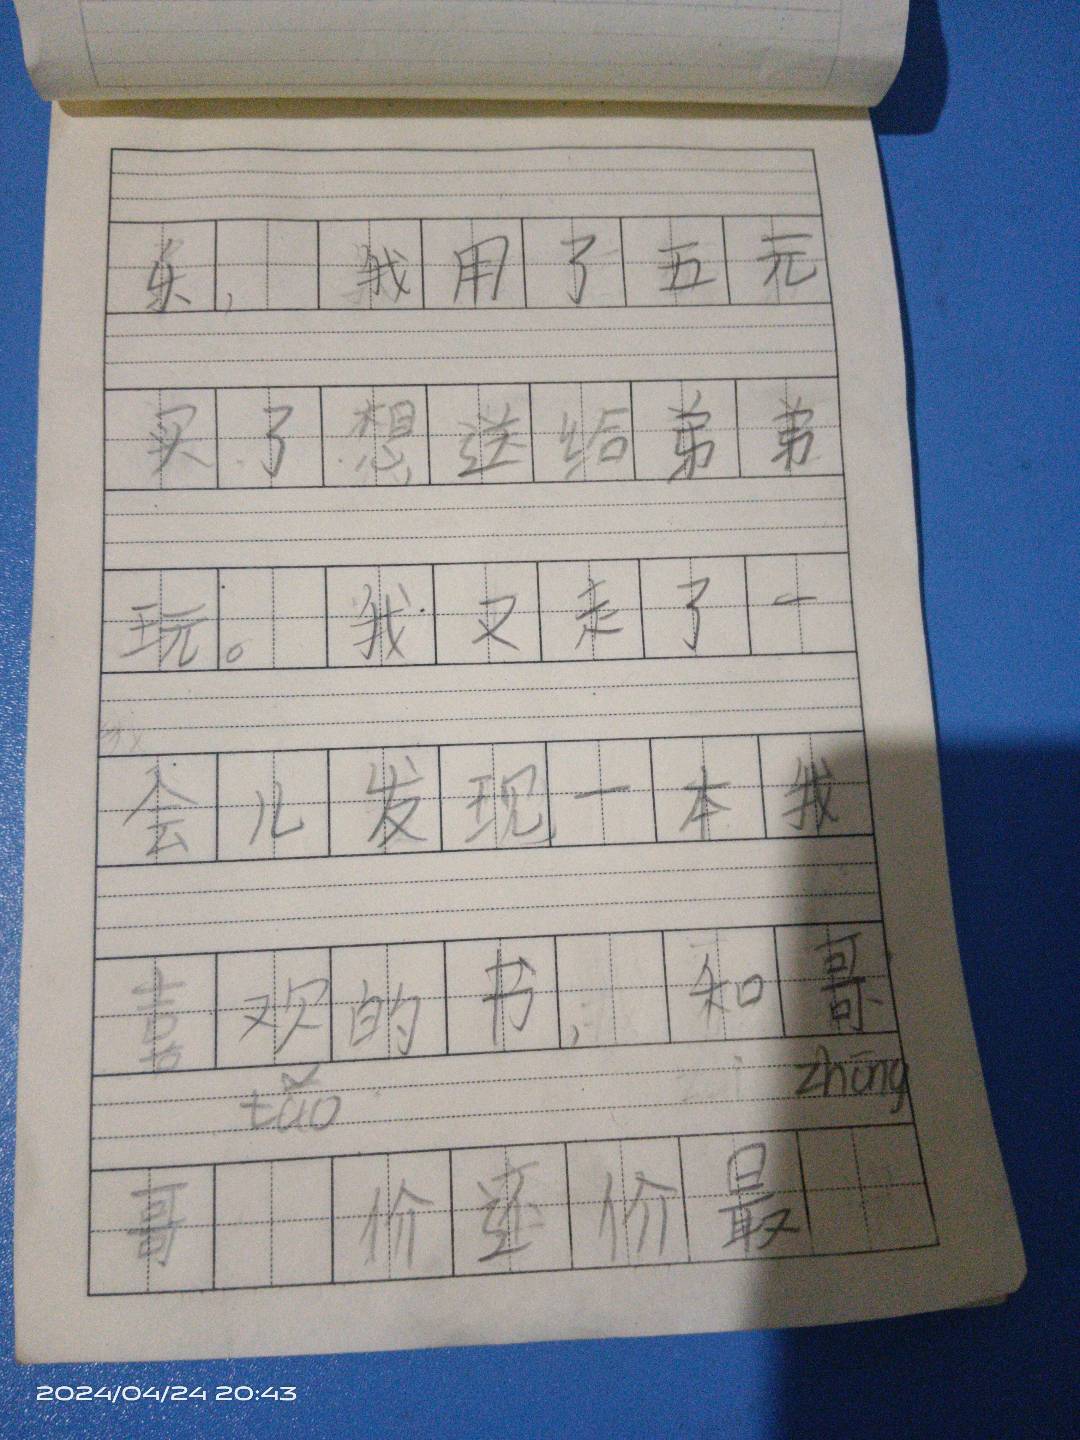 东，我用了五元
买了想送给弟弟
玩。我又走了一
会儿发现一本我
喜欢的书，和哥
tǎo zhōng
哥 价还价最
2024/04/24 20:43